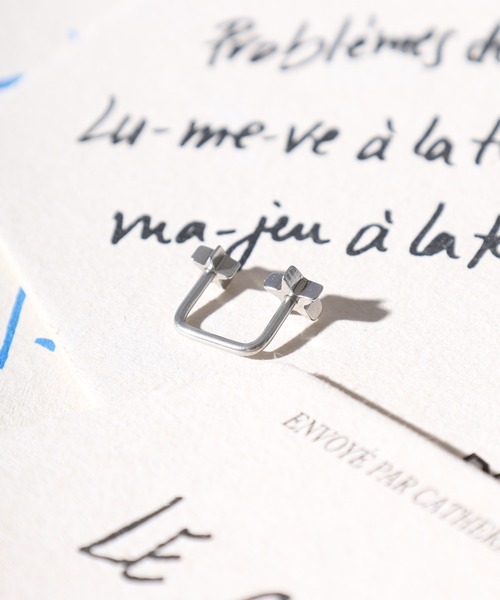 Problèmes de
Lu-me-ve à la
ma-jeu à la
ENVOYÉ PAR
LE